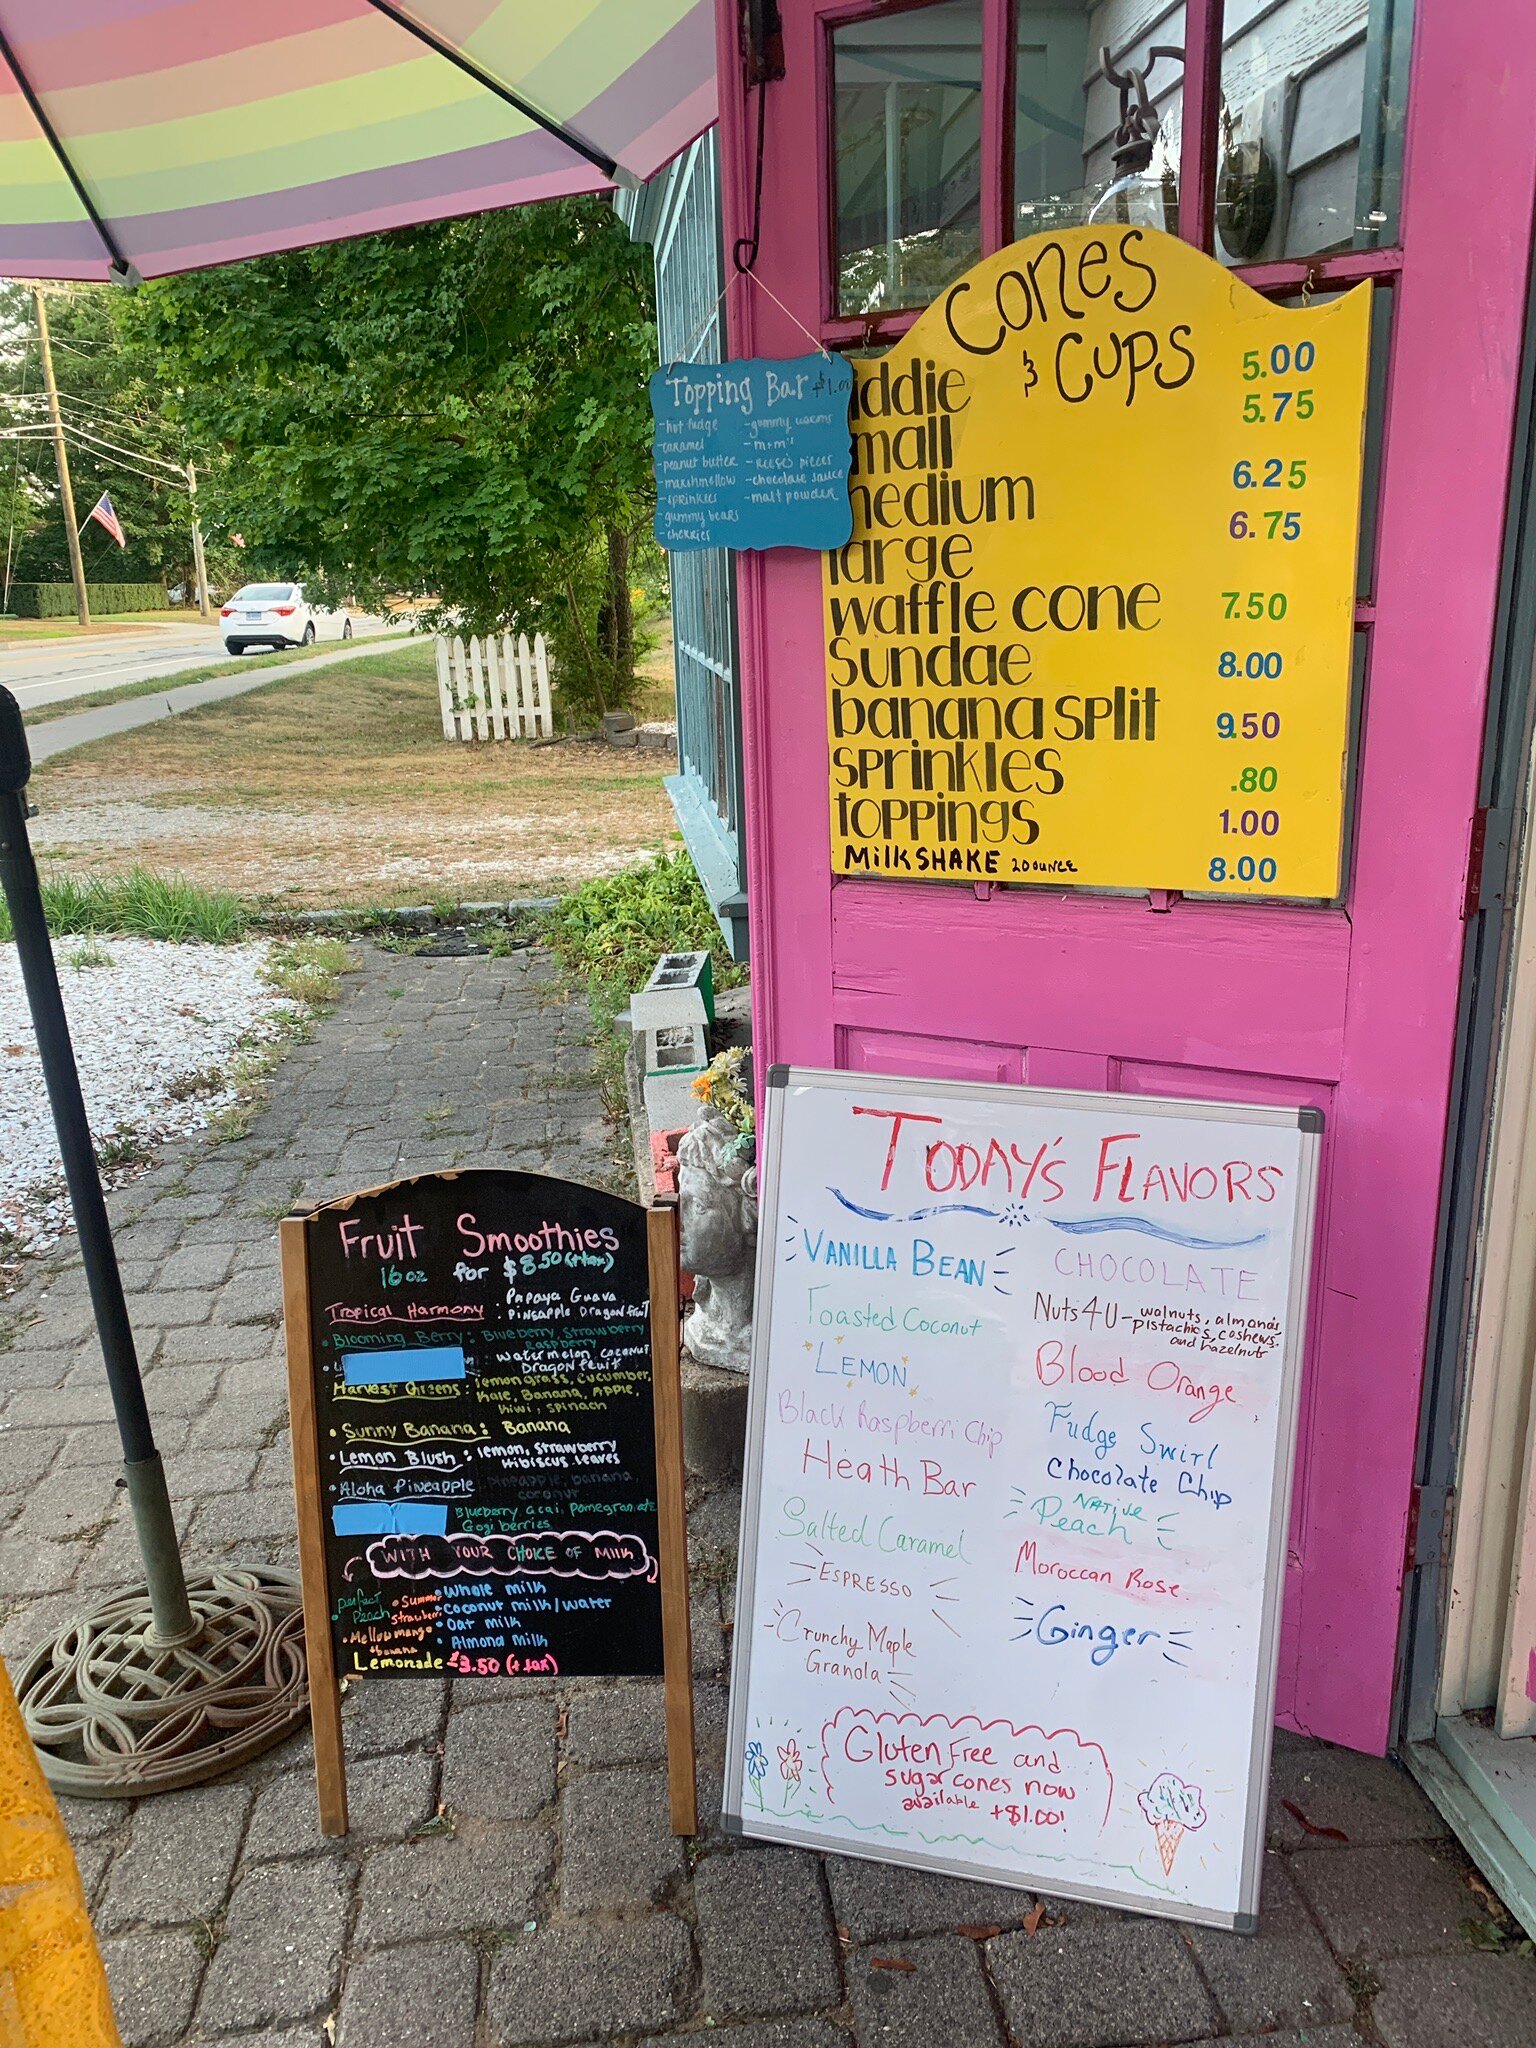 Cones
& Cups
iddie 5.00
mall 5.75
medium 6.25
large 6.75
waffle cone 7.50
Sundae 8.00
banana split 9.50
sprinkles .80
toppings 1.00
MilkSHAKE 20 OUNCE 8.00
Topping Bar +$1.00
-hot fudge
-caramel
-peanut butter
-marshmellow
-sprinkles
-gummy bears
-cherries
-gummy worms
-m+m's
-REESE'S pieces
-chocolate sauce
-malt powder
TODAY'S FLAVORS
VANILLA BEAN
Toasted Coconut
LEMON
Black Raspberri Chip
Heath Bar
Salted Caramel
ESPRESSO
Crunchy Maple
Granola
CHOCOLATE
Nuts 4 U - walnuts, almonds,
pistachios, cashews,
and hazelnuts
Blood Orange
Fudge Swirl
Chocolate Chip
NATIVE
Peach
Moroccan Rose
Ginger
Gluten Free and
sugar cones now
available +$1.00!
Fruit Smoothies
16 oz for $8.50 (+tax)
Tropical Harmony: Papaya Guava
Pineapple Dragonfruit
• Blooming Berry: Blueberry, Strawberry
Raspberry
: Watermelon, coconut
Dragon fruit
Harvest Greens: lemongrass, cucumber,
Kale, Banana, Apple,
Kiwi, spinach
• Sunny Banana: Banana
• Lemon Blush: lemon, strawberry
Hibiscus leaves
• Aloha Pineapple pineapple, banana,
coconut
Blueberry acai, pomegranate
Gogi berries
WITH YOUR CHOICE OF Milk
• Whole milk
• Coconut milk/water
• Oat milk
• Almond milk
• perfect
Peach
• Summer
Strawberri
• Mellow mango
banana
Lemonade 3.50 (+ tax)